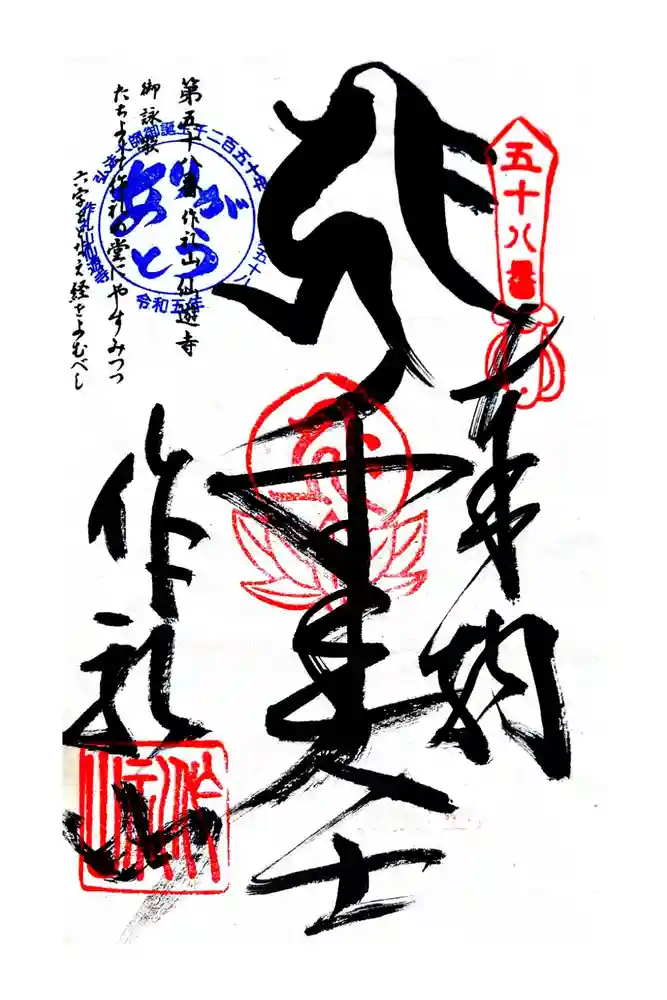 五十八番
奉納
千手大士
作礼山
第五十八番 作礼山仙遊寺
御詠歌
たちよりて作礼の堂にやすみつつ
六字をとなえ経をよむべし
弘法大師御誕生千二百五十年
ありがとう
令和五年
作礼山仙遊寺